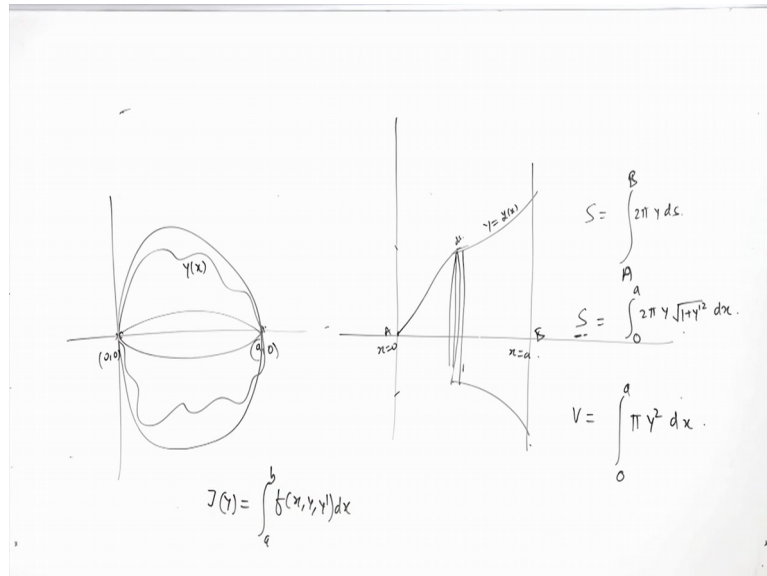 y(x)
(0,0)
(a,0)
J(y) = ∫_a^b f(x,y,y')dx
y = y(x)
ds
A
x=0
B
x=a.
S = ∫_A^B 2π y ds.
S = ∫_0^a 2π y √1+y'² dx.
V = ∫_0^a π y² dx.